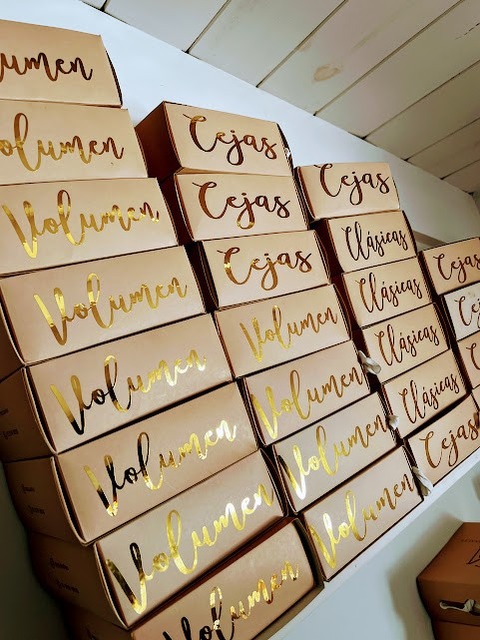 umen
olumen
Volumen
Volumen
Volumen
Volumen
Volumen
Volumen
Cejas
Cejas
Cejas
Volumen
Volumen
Volumen
Volumen
Cejas
Clásicas
Clásicas
Clásicas
Clásicas
Cejas
Cejas